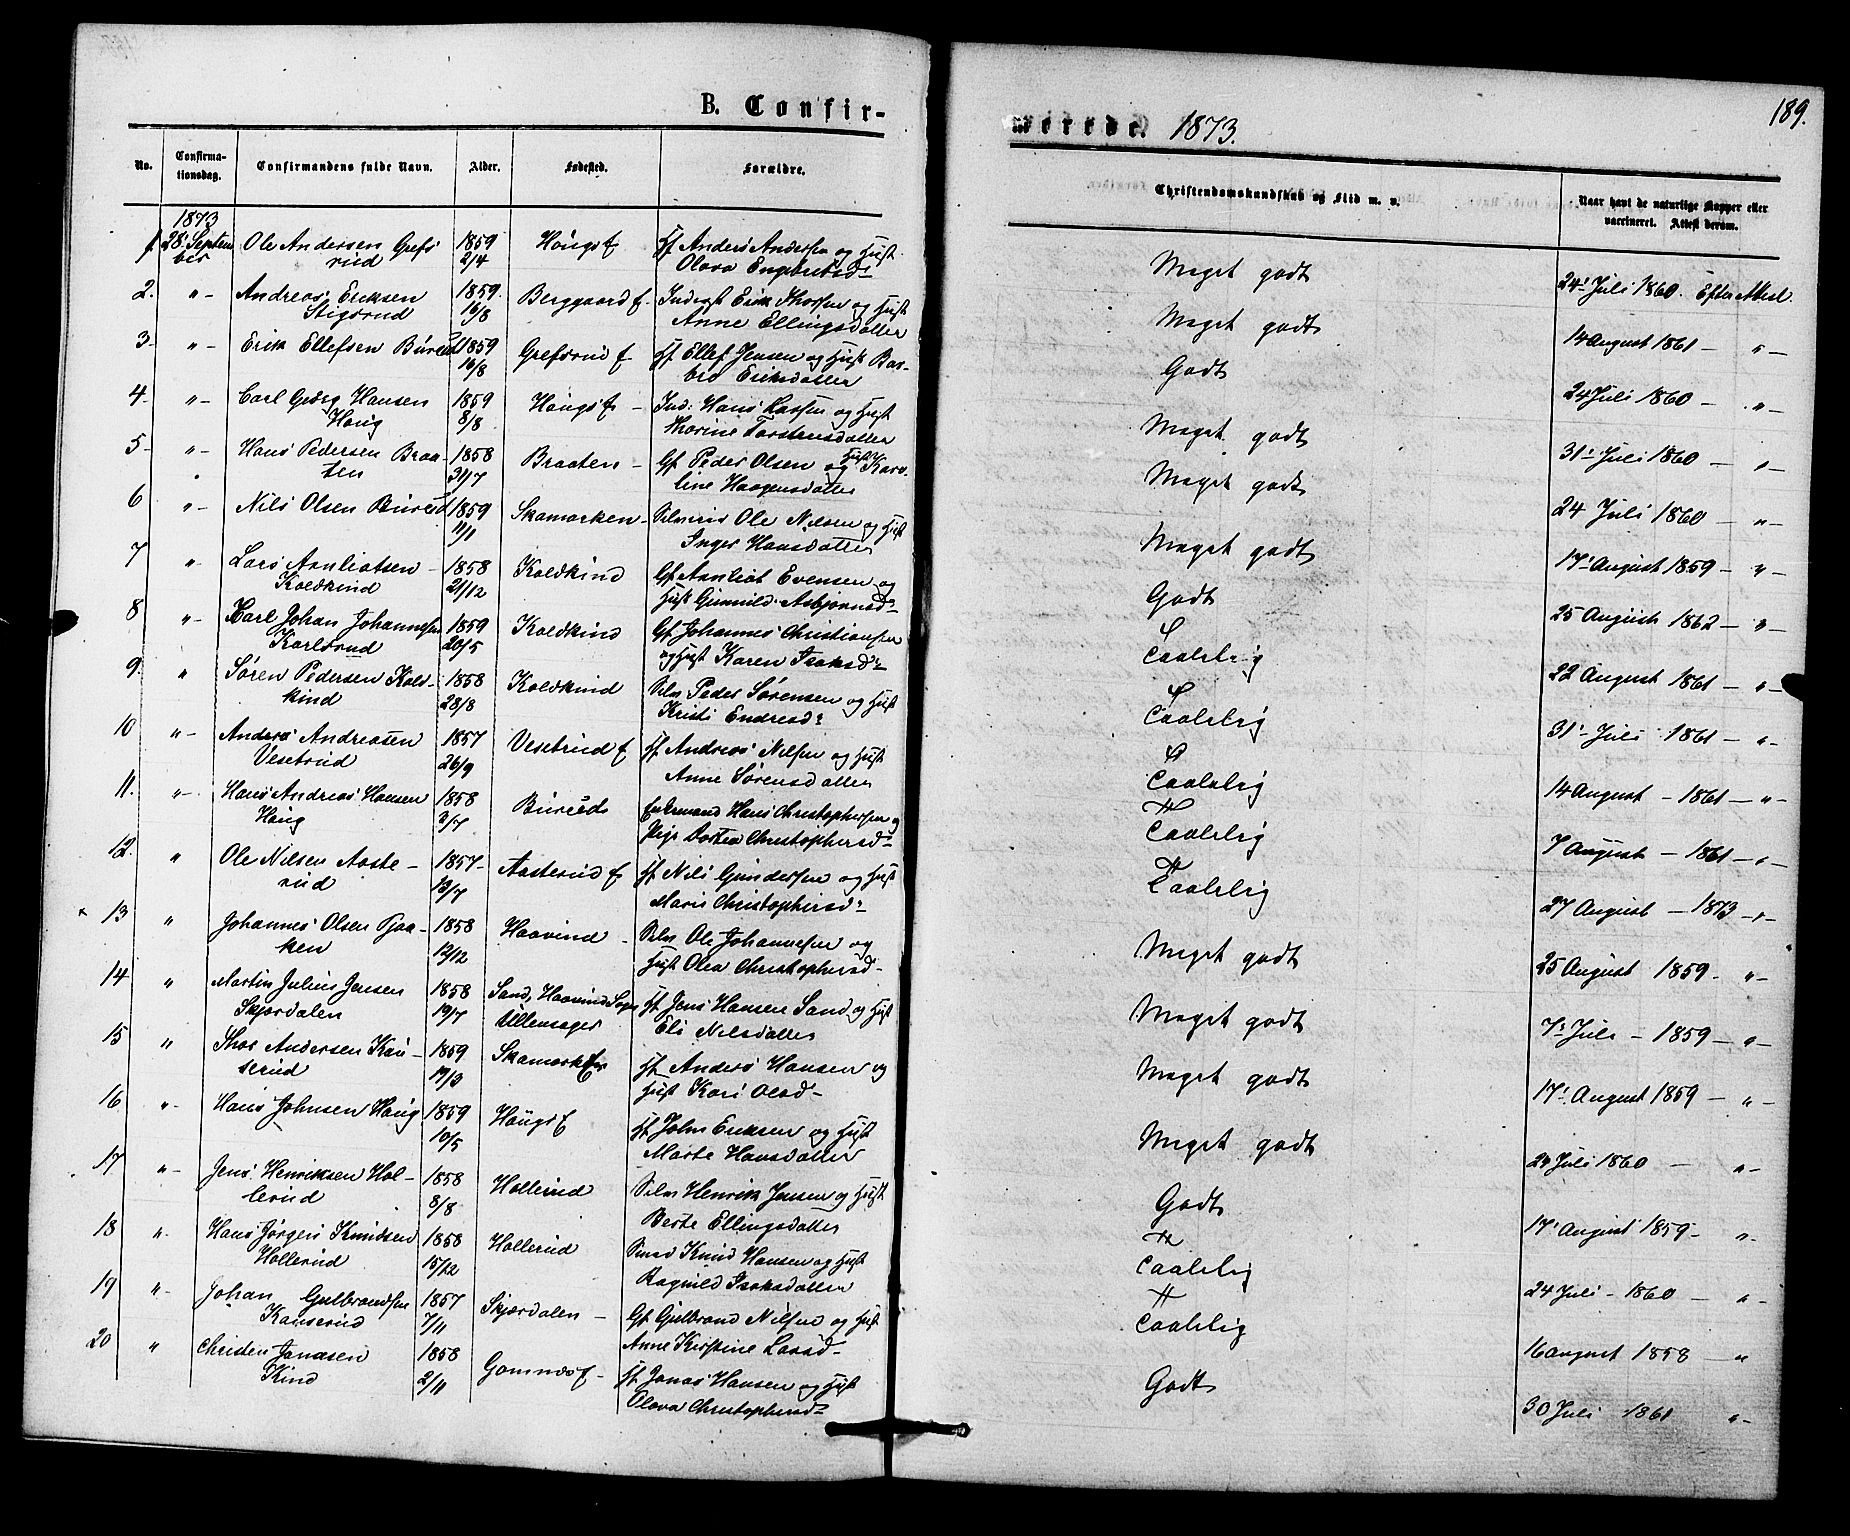 189.
B. Confirmerede. 1873.
No. Confirmationsdag. Confirmandens fulde Navn. Alder. Fødested. Forældre. Christendomskundskab og Flid m. v. Naar havt de naturlige Kopper eller vaccineret. Attest derom.
1873
1 28' Septem Ole Andersen Grefs 1859 Haugs E Hf Anders Andersen og Hust
ber rud 2/4 Olava Engebretsd: Meget godt 24' Juli 1860. Efter Attest
2. " - Andreas Eriksen 1859. Berggaard E. Inderst Erik Thorsen og Hust
Stigsrud 16/8 Anne Ellingsdatter Meget godt 14 August 1861 - " -
3. " - Erik Ellefsen Burud 1859 Grefsrud E Hf Ellef Jensen og Hust Bar-
16/8 bro Eriksdatter Godt 24 Juli 1860 - " -
4. " - Carl Georg Hansen 1859 Haugs E - Ind: Hans Larsen og Hust
Haug 8/8 Thorine Torstensdatter Meget godt 31' Juli 1860 - " -
5. " - Hans Pedersen Braa- 1858 Braaten - Gf Peder Olsen og Hust Karo-
ten 31/7 line Haagensdatter Meget godt 24 Juli 1860 - " -
6 " - Nils Olsen Burud 1859 Skamarken - Selveier Ole Nilsen og Hust
11/1 Inger Hansdatter Meget godt 17' August 1859 - " -
7 " - Lars Arnliotsen - 1858 Koldkind Gf Arnliot Evensen og
Koldkind 21/12 Hust Gunnild Asbjørnsd: Godt 25 August 1862 - " -
8 " - Karl Johan Johannesen 1859 Koldkind Gf Johannes Christiansen
Karlsrud 20/5 og Hust Karen Isaksd: Taalelig 22 August 1861 - " -
9. " Søren Pedersen Kold- 1858 Koldkind Selv Peder Sørensen og Hust
kind 28/8 Kristi Endresd: Taalelig 31' Juli 1861 - " -
10 " - Anders Andreasen 1857 Vesetrud E Hf Andreas Nilsen og Hust
Vesetrud 26/9 Anne Sørensdatter Taalelig 14 August - 1861 - " -
11. " - Hans Andreas Hansen 1858 Buruds Enkemand Hans Christophersen og
Haug 3/7 Pige Dortea Christophersd: Taalelig 7 August - 1861 - " -
12. " Ole Nilsen Aaste- 1857- Aasterud E Hf Nils Gundersen og Hust
rud 13/7 Maria Christophersd: Taalelig 27 August - 1873 - " -
13 " Johannes Olsen 1858 Haavind - Selv Ole Johannesen og
ken 12/12 Hust Olea Christophersd- Meget godt 25 August 1859. " -
14 " Martin Julius Jensen 1858 Sand, Haavind Sogn Hf Jens Hansen Sand og Hust
Skjærdalen 19/7 Ullensager Eli Nilsdatter Meget godt 7' Juli - 1859 - " -
15 " Thor Andersen Kau- 1859 Skamark Hf Anders Hansen og
serud 19/3 Hust Kari Olsd- Meget godt 17' August 1859 - " -
16 " - Hans Johnsen Haug 1859 Haugs E Hf John Eriksen og Hust
10/5 Marte Hansdatter Meget godt 24 Juli 1860 - " -
17 " - Jens Henriksen Hol- 1858 Hollerud Selv Henrik Jensen og Hust
lerud 8/8 Berte Ellingsdatter Godt 17' August 1859 - " -
18 " Hans Jørgen Knudsen 1858 Hollerud Knud Hansen og Hust
Hollerud 15/12 Ragnild Isaksdatter Taalelig 24 Juli - 1860 - " -
19 " - Johan Gulbrandsen 1857 Skjærdalen - Gf Gulbrand Nilsen og Hust
Kauserud 7/11 Anne Kirstine Larsd- Taalelig 16 August 1858 - "
20 " Christen Janasen 1858 E - Hf Jonas Hansen og Hust
Kind 2/11 Olava Christophersd: Godt 30 Juli 1861 " -